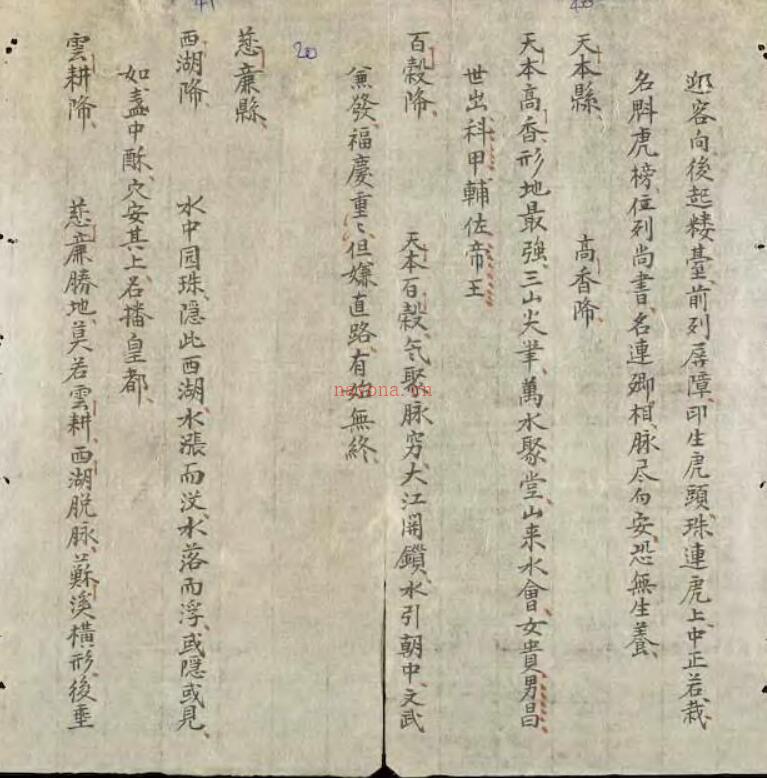 迎客向後起楼臺前列屏障印生虎頭珠連虎上中正若栽
名魁虎榜位列尚書名連卿相脉尽向安恐無生養
天本縣 高香隄
天本高香形地最強三山尖筆萬水聚堂山来水會女貴男昌
世出科甲輔佐帝王
百穀隄 天本百穀氣聚脉穷大江開鎖水引朝中文武
兼發福慶重〻但嫌直路有始無終
20
慈廉縣
西湖隄 水中园珠隱此西湖水漲而没水落而浮或隠或見
如盞中酥穴安其上名播皇都
雲耕隄 慈廉勝地莫若雲耕西湖脱脉蘇溪横形後垂
nayona.cn